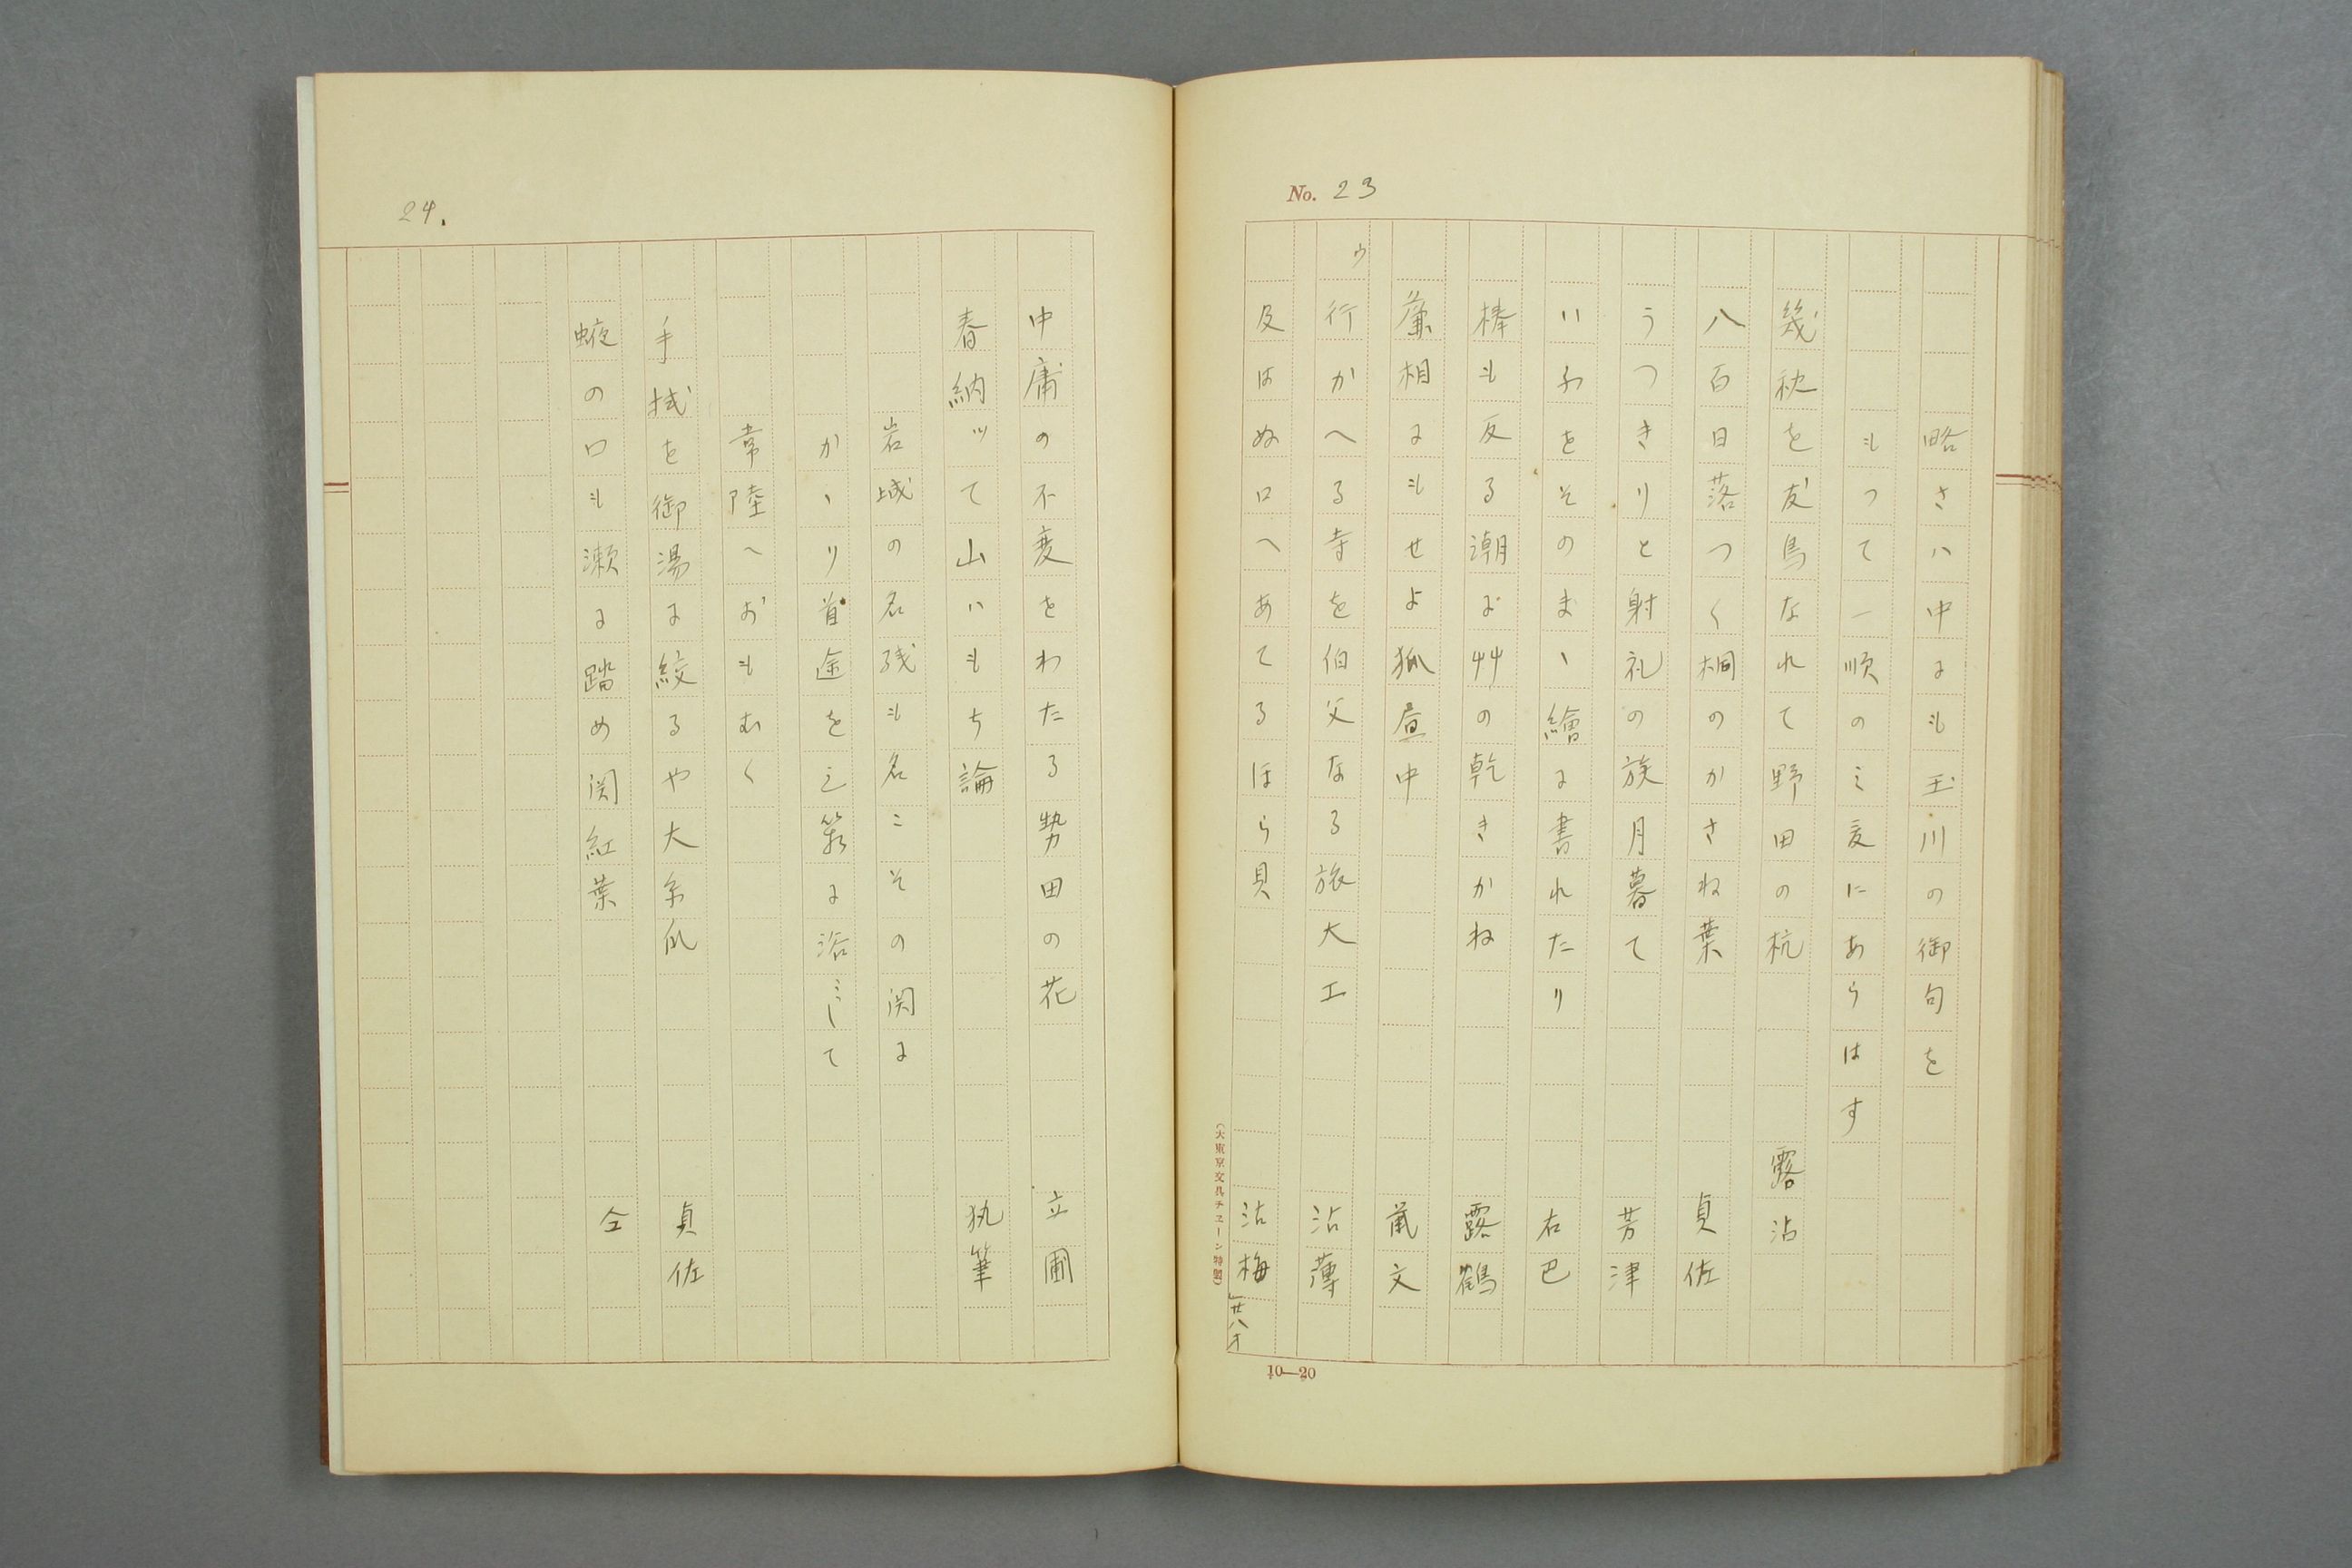 No. 23
略さハ中にも玉川の御句を
もつて一順のミ爰にあらはす
幾秋を友鳥なれて野田の杭 露沾
八百日落つく桐のかさね葉 貞佐
うつきりと射礼の族月暮て 芳津
いわをそのまゝ繪に書れたり 右巴
棒も反る潮に艸の乾きかね 露鶴
麁相にもせよ狐昼中 菌文
ウ
行かへる寺を伯父なる旅大工 沾薄
及はぬ口へあてるほら貝 沾梅
」廿八オ
(大東京文具チェーン特製)
10—20
24.
中庸の不変をわたる勢田の花 立圃
春納ッて山ハもち論 執筆
岩城の名残も名こその関に
かゝり首途をし箱に浴ミして
常陸へおもむく
手拭を御湯に絞るや大糸瓜 貞佐
蛇の口も瀬に踏め関紅葉 仝